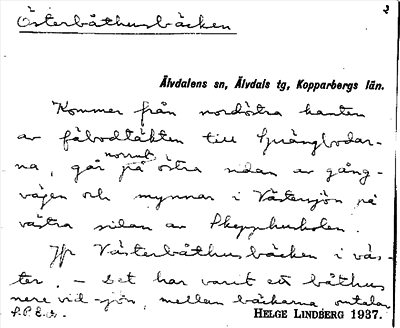 Österbåthusbäcken
2
Älvdalens sn, Älvdals tg, Kopparbergs län.
Kommer från nordöstra kanten
av fäbodtäkten till Svängbodar-
na, går norrut på östra sidan av gång-
vägen och mynnar i Västersjön på
västra sidan av Skepphusholen.
Jfr Västerbåthusbäcken i väs-
ter. – Det har varit ett båthus
nere vid sjön, mellan bäckarna
HELGE LINDBERG 1937.